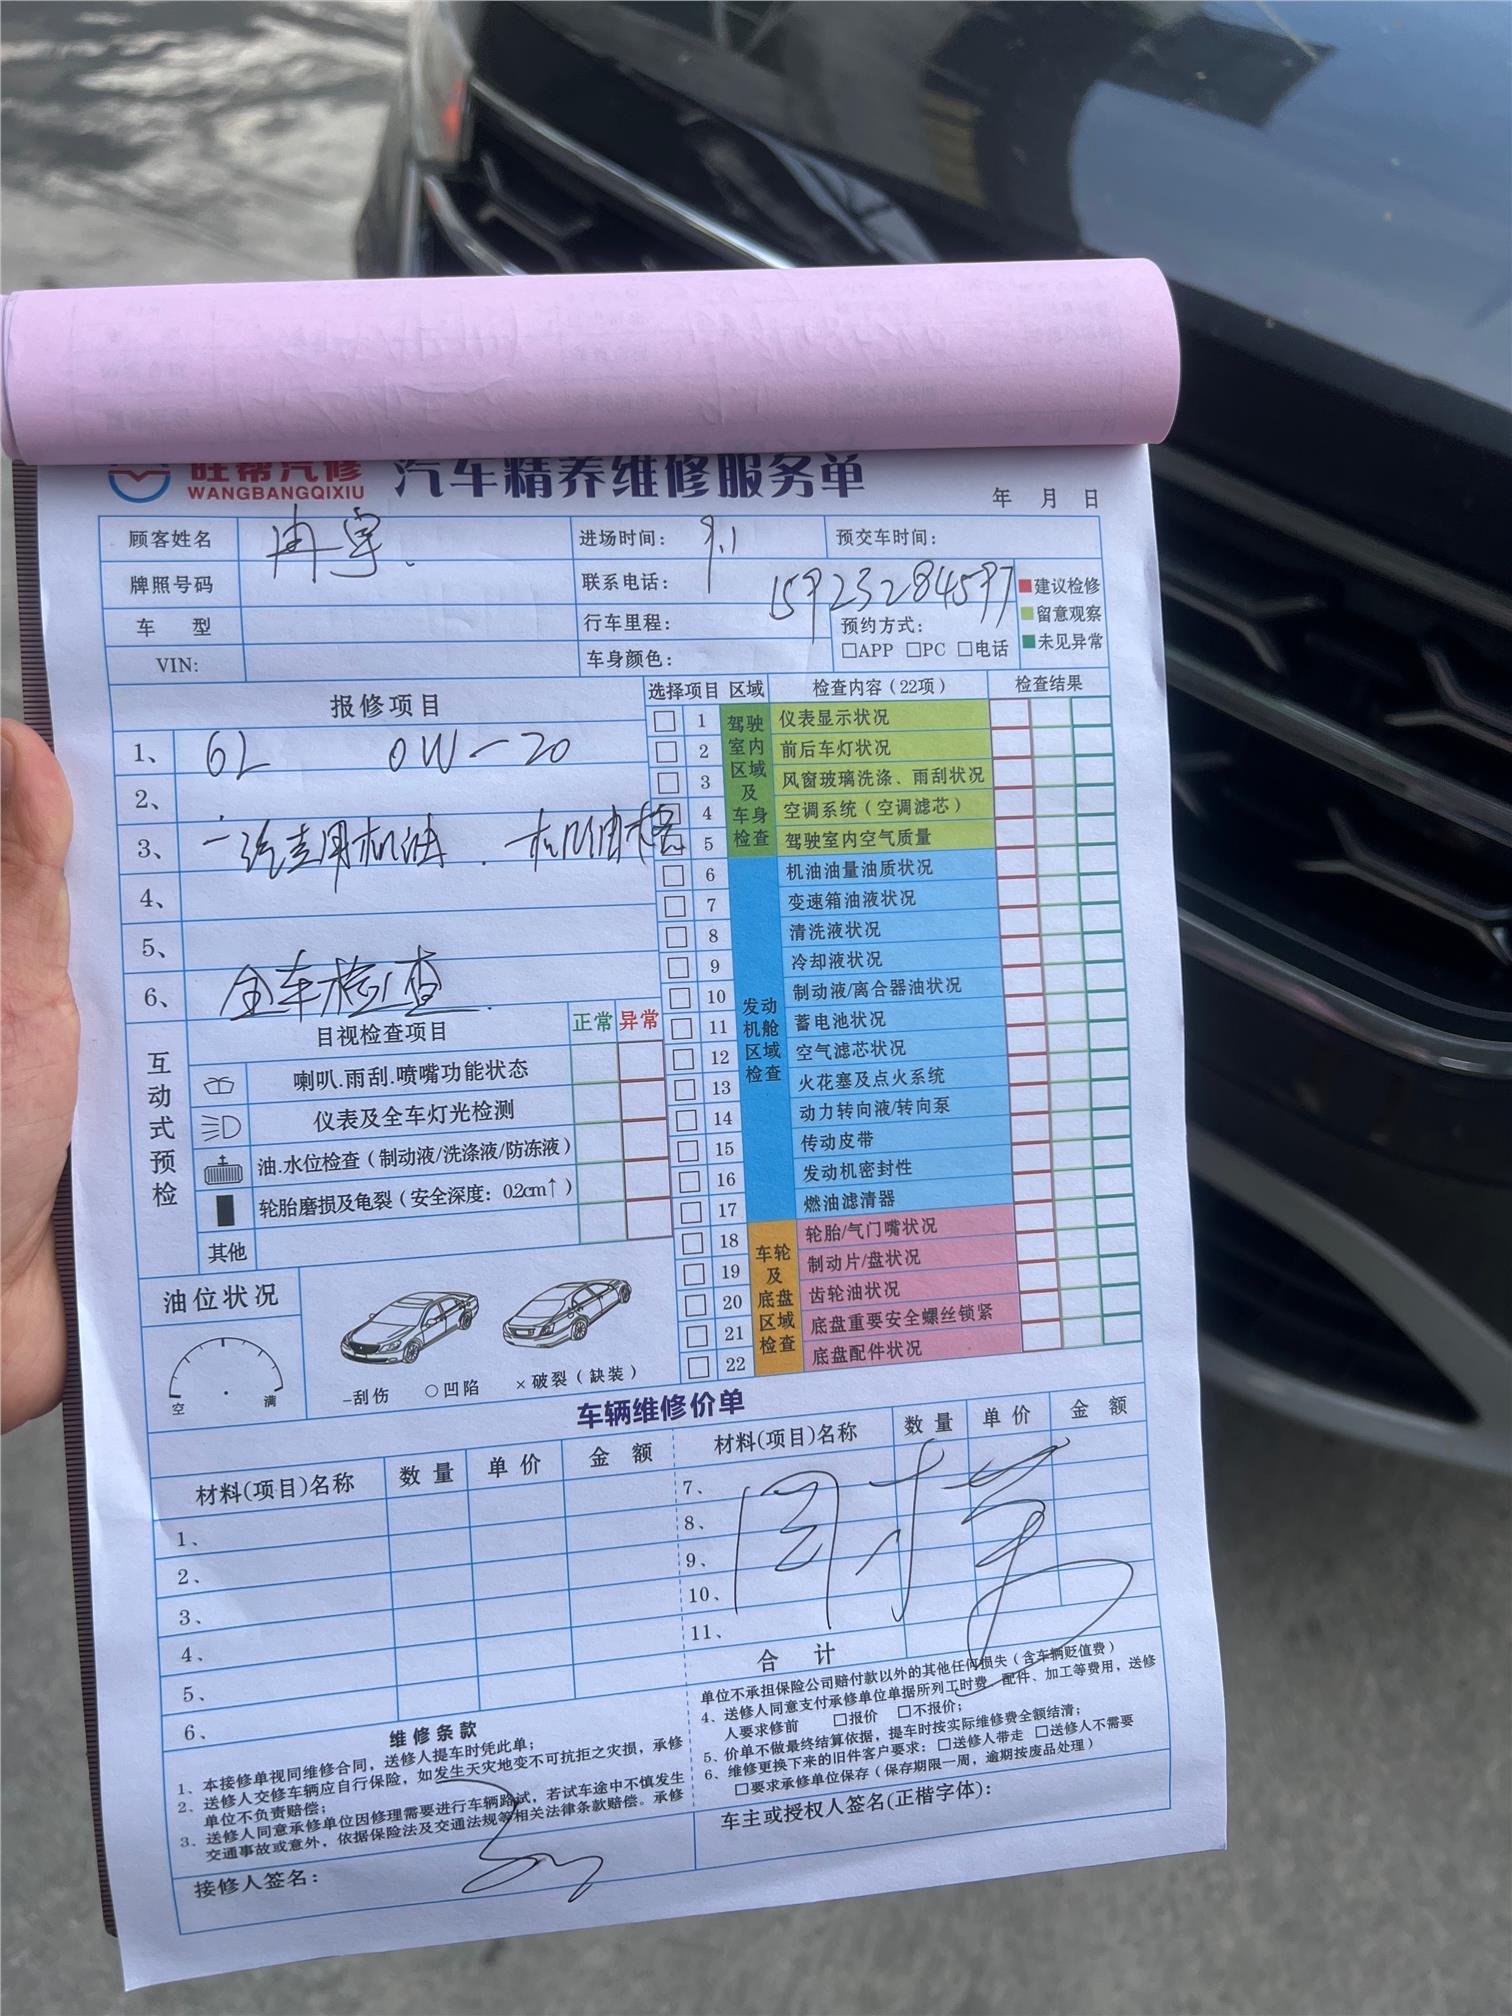 旺帮汽修
WANGBANGQIXIU
汽车精养维修服务单
年 月 日
顾客姓名 冉宇 进场时间: 9.1 预交车时间:
牌照号码 联系电话: 15923284597
车 型 行车里程: 预约方式:
□APP □PC □电话
VIN: 车身颜色:
建议检修
留意观察
未见异常
报修项目
1、 6L 0W-20
2、
3、 一汽专用机油、机油格
4、
5、
6、 全车检查
选择项目 区域 检查内容(22项) 检查结果
驾驶室内区域及车身检查
1 仪表显示状况
2 前后车灯状况
3 风窗玻璃洗涤、雨刮状况
4 空调系统(空调滤芯)
5 驾驶室内空气质量
发动机舱区域检查
6 机油油量油质状况
7 变速箱油液状况
8 清洗液状况
9 冷却液状况
10 制动液/离合器油状况
11 蓄电池状况
12 空气滤芯状况
13 火花塞及点火系统
14 动力转向液/转向泵
15 传动皮带
16 发动机密封性
17 燃油滤清器
车轮及底盘区域检查
18 轮胎/气门嘴状况
19 制动片/盘状况
20 齿轮油状况
21 底盘重要安全螺丝锁紧
22 底盘配件状况
互动式预检
目视检查项目 正常 异常
喇叭.雨刮.喷嘴功能状态
仪表及全车灯光检测
油.水位检查(制动液/洗涤液/防冻液)
轮胎磨损及龟裂(安全深度: 0.2cm↑)
其他
油位状况
空 满
-刮伤 ○凹陷 ×破裂(缺装)
车辆维修价单
材料(项目)名称 数量 单价 金额
1、
2、
3、
4、
5、
6、
材料(项目)名称 数量 单价 金额
7、
8、
9、
10、
11、
合 计
维修条款
1、本接修单视同维修合同，送修人提车时凭此单；
2、送修人交修车辆应自行保险，如发生天灾地变不可抗拒之灾损，承修
单位不负责赔偿；
3、送修人同意承修单位因修理需要进行车辆路试，若试车途中不慎发生
交通事故或意外，依据保险法及交通法规等相关法律条款赔偿。承修
单位不承担保险公司赔付款以外的其他任何损失(含车辆贬值费)
4、送修人同意支付承修单位单据所列工时费、配件、加工等费用，送修
人要求修前 □报价 □不报价；
5、价单不做最终结算依据，提车时按实际维修费全额结清；
6、维修更换下来的旧件客户要求: □送修人带走 □送修人不需要
□要求承修单位保存(保存期限一周，逾期按废品处理)
接修人签名:
车主或授权人签名(正楷字体):